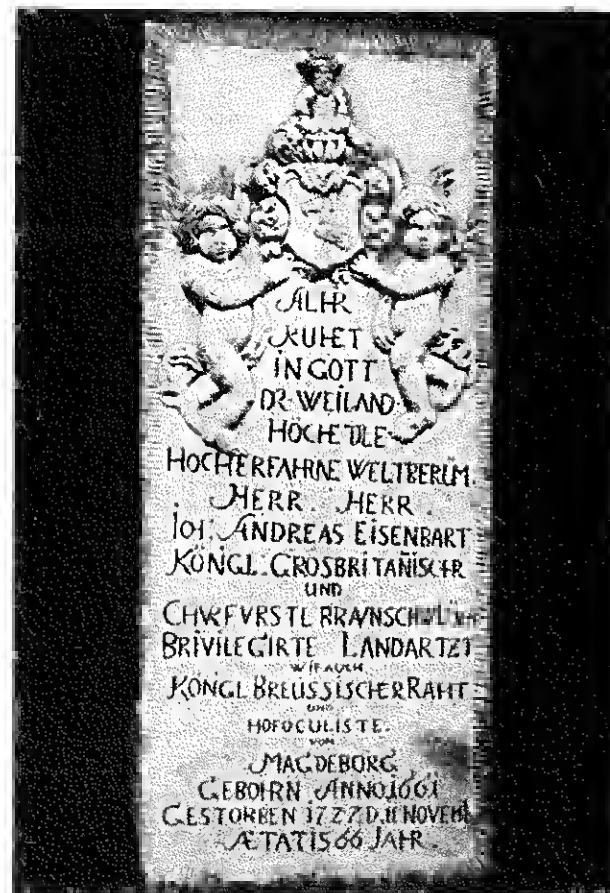 ALHR
RUHET
IN GOTT
DR WEILAND
HOCHEDLE
HOCHERFAHNE WELTBERÜM.
HERR. HERR.
IOH. ANDREAS EISENBART
KÖNGL. GROSBRITAÑISCHR
UND
CHVRFVRSTL BRAVNSCHW LÜN
BRIVILEGIRTE LANDARTZT
WIE AUCH
KÖNGL BREUSSISCHER RAHT
UND
HOFOCULISTE.
VON
MAGDEBORG
GEBOIRN ANNO 1661
GESTORBEN 1727 D. 11 NOVEMB
ÆTATIS 66 JAHR.